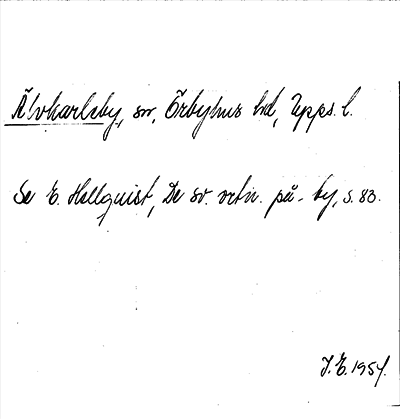 Älvkarleby, sn, Örbyhus hd, Upps. l.
Se E. Hellquist, De sv. ortn. på -by, s. 83.
J.E. 1954.